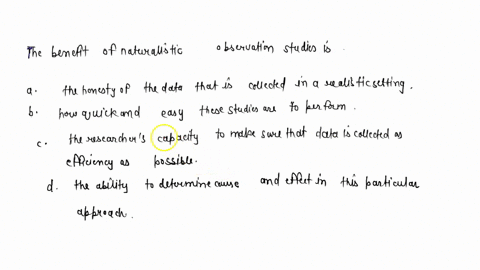 The benefit of naturalistic observation studies is.
a. the honesty of the data that is collected in a realistic setting.
b. how quick and easy these studies are to perform.
c. the researcher's capacity to make sure that data is collected as
efficiency as possible.
d. the ability to determine cause and effect in this particular
approach.